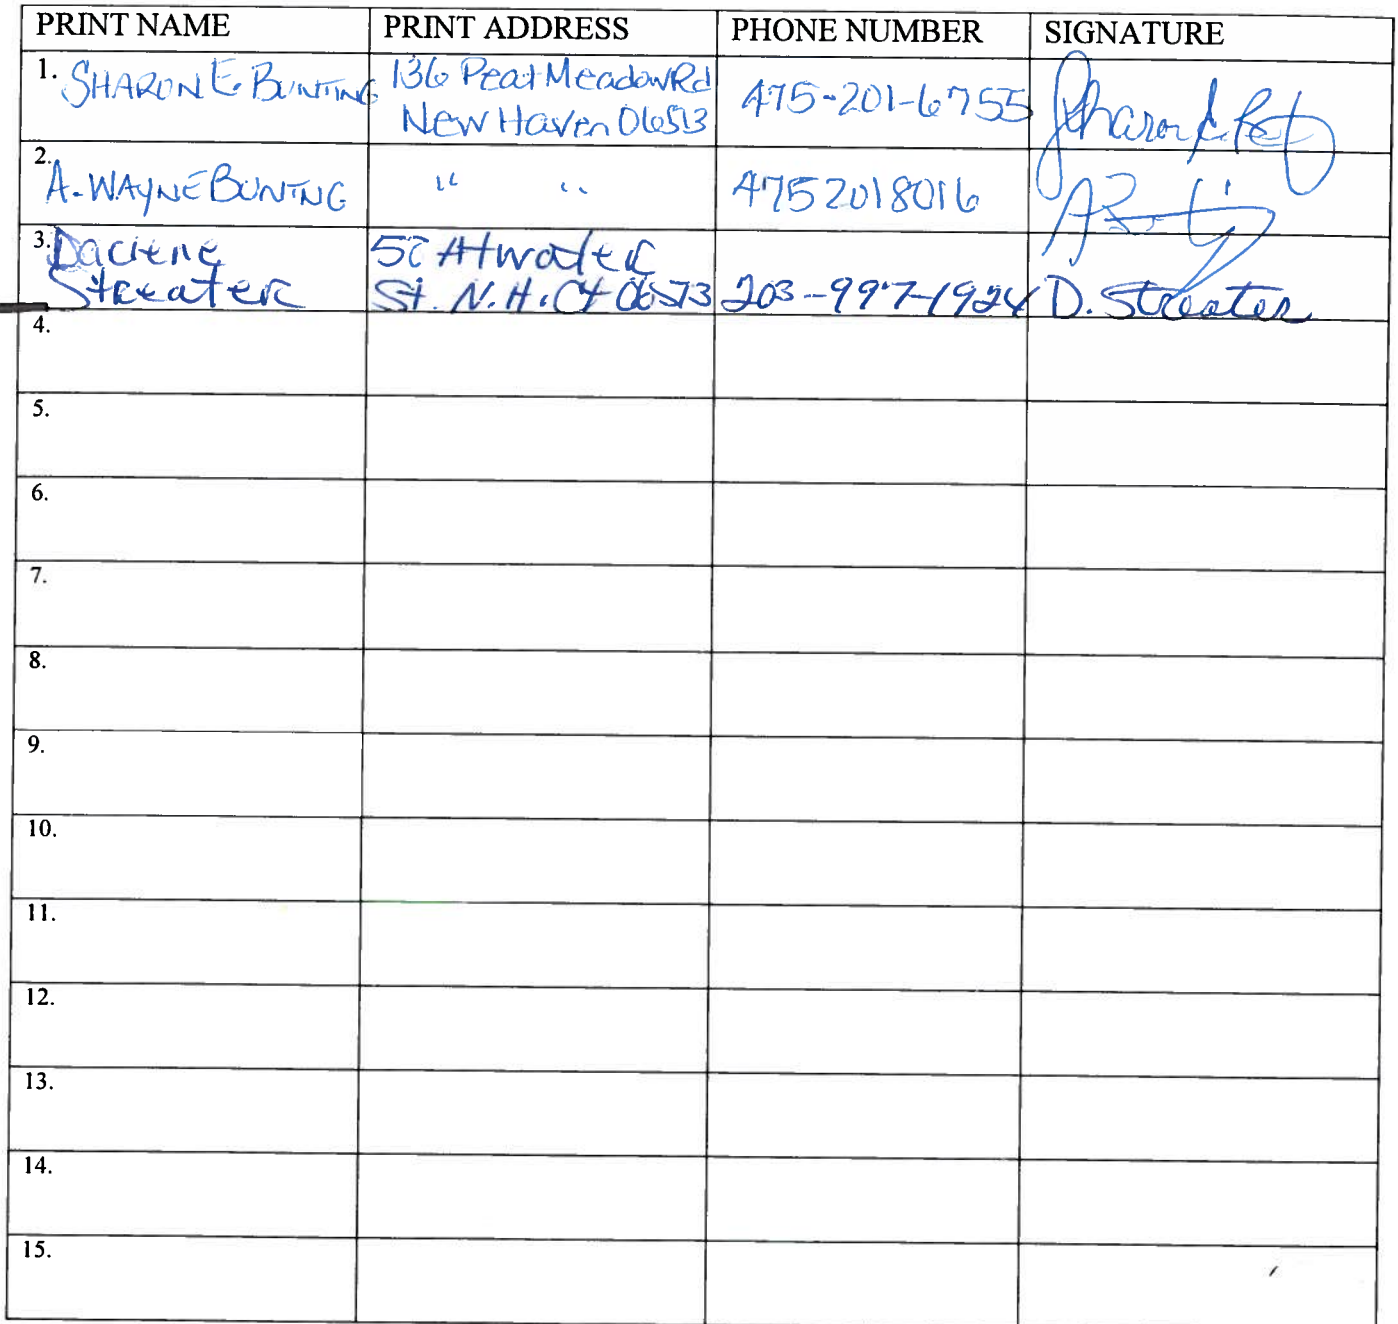 PRINT NAME PRINT ADDRESS PHONE NUMBER SIGNATURE
1. SHARON E BUNTING 136 Peat Meadow Rd
New Haven 06513 475-201-6755 Sharon E.
2. A. WAYNE BUNTING " " 4752018016
3. Darlene
Streater Atwater
St. N.H. Ct 203-997-1924 D. Streater
4.
5.
6.
7.
8.
9.
10.
11.
12.
13.
14.
15.